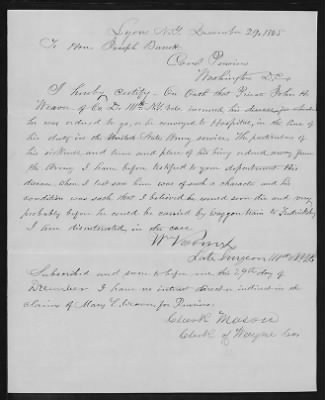 Lyons N.Y. December 29, 1865
To Hon. Joseph Barrett
Com'd Pensions
Washington D.C.
I hereby certify - On Oath that Private John H.
Weaver of Co. D. 111th N.Y. Vols incurred his disease for which
he was ordered to go, or be conveyed to Hospital, in the line of
his duty in the United States Army service. The particulars of
his sickness and time and place of his being ordered away from
the Army I have before testified to your department this
disease when I last saw him was of such a character and his
condition was such that I believed he would soon die and very
probably before he could be carried by waggon train to
I am disinterested in the case
Wm
Late Surgeon 111th N.Y.
Subscribed and sworn before me this 29th day of
December I have no interest direct or indirect in the
claims of Mary C. Weaver, for Pensions
Mason
Clerk of Wayne Co.